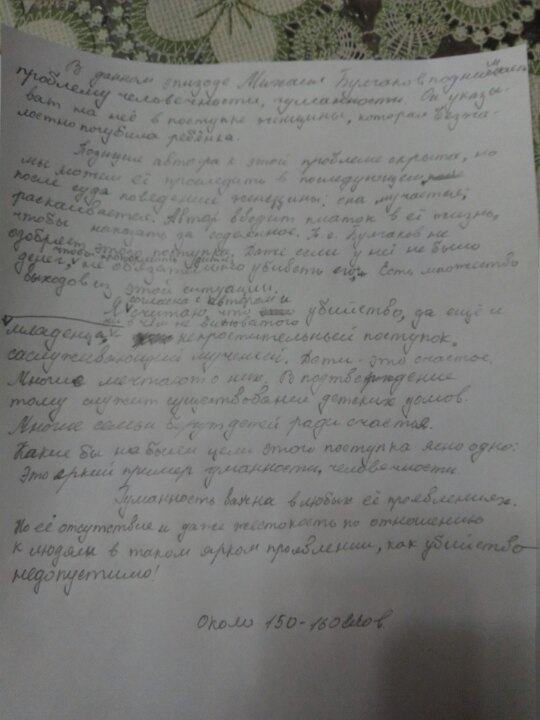 В данном эпизоде Михаил Булгаков поднимает
проблему человечности, гуманности. Он указы-
вает на неё в поступке женщины, которая безжа-
лостно погубила ребёнка.
Позиция автора к этой проблеме скрыта, но
мы можем её проследить в последующем
после суда поведение женщины: она мучается,
раскаивается. Автор вводит платок в её жизнь,
чтобы наказать за содеянное. Т.е. Булгаков не
одобряет этого поступка. Даже если у неё не было
денег, чтобы прокормить дитя, не обязательно убивать его. Есть множество
выходов из этой ситуации.
Я согласна с автором и считаю, что убийство, да ещё и
младенца, ни в чём не виноватого непростительный поступок,
заслуживающий мучений. Дети - это счастье.
Многие мечтают о них. В подтверждение
тому служит существование детских домов.
Многие семьи берут детей ради счастья.
Какие бы не были цели этого поступка ясно одно:
Это яркий пример гуманности, человечности.
Гуманность важна в любых её проявлениях.
Но её отсутствие и даже жестокость по отношению
к людям в таком ярком проявлении, как убийство
недопустимо!
Около 150-160 слов.